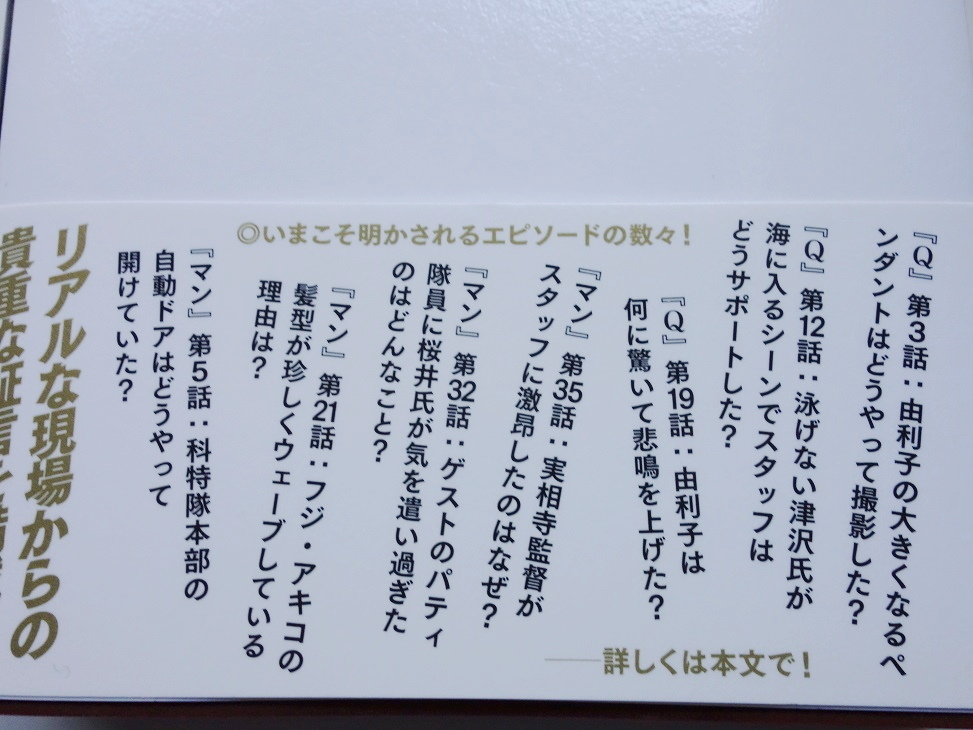 ◎いまこそ明かされるエピソードの数々！
『Q』第3話：由利子の大きくなるペ
ンダントはどうやって撮影した？
『Q』第12話：泳げない津沢氏が
海に入るシーンでスタッフは
どうサポートした？
『Q』第19話：由利子は
何に驚いて悲鳴を上げた？
『マン』第35話：実相寺監督が
スタッフに激昂したのはなぜ？
『マン』第32話：ゲストのパティ
隊員に桜井氏が気を遣い過ぎた
のはどんなこと？
『マン』第21話：フジ・アキコの
髪型が珍しくウェーブしている
理由は？
『マン』第5話：科特隊本部の
自動ドアはどうやって
開けていた？
――詳しくは本文で！
リアルな現場からの
貴重な証言を